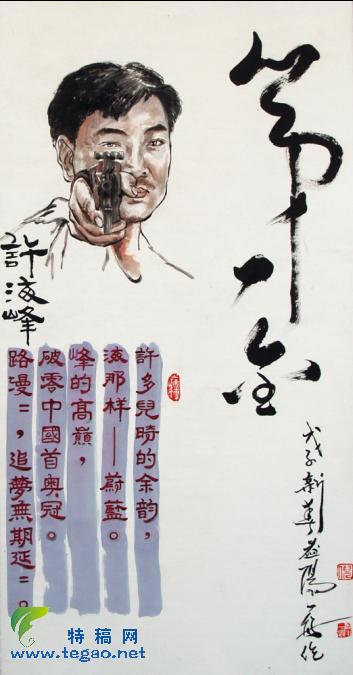 第一金
許海峰
許多兒時的余韵，
海那样——蔚藍。
峰的高巔，
破零中國首奥冠。
路漫=，追夢無期延=。
戊子新
特稿网
www.tegao.net